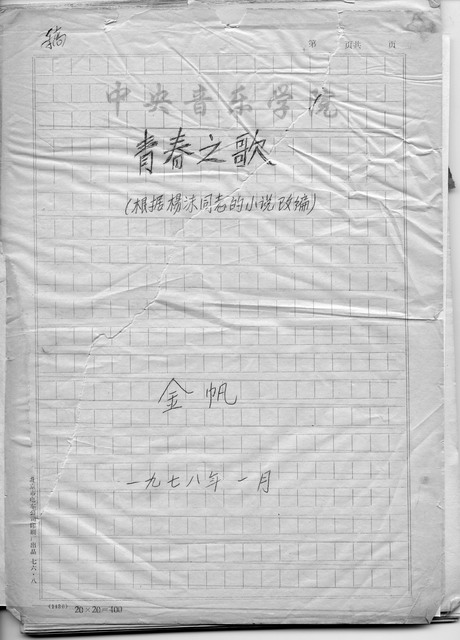 稿
第 页共 页
中央音乐学院
青春之歌
(根据杨沫同志的小说改编)
金帆
一九七八年一月
出品 七六·八
(1456) 20×20=400